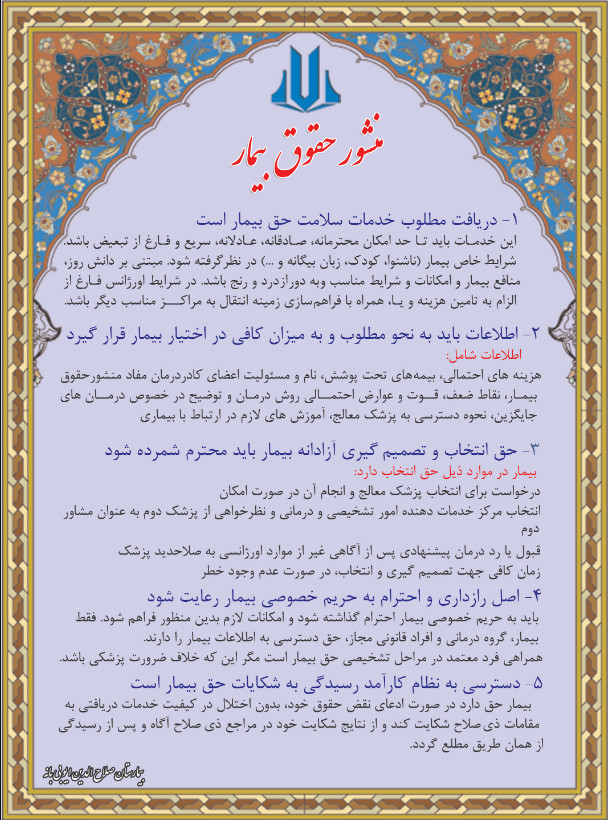 منشور حقوق بیمار
۱- دریافت مطلوب خدمات سلامت حق بیمار است
این خدمات باید تا حد امکان محترمانه، صادقانه، عادلانه، سریع و فارغ از تبعیض باشد.
شرایط خاص بیمار (ناشنوا، کودک، زبان بیگانه و ...) در نظرگرفته شود. مبتنی بر دانش روز،
منافع بیمار و امکانات و شرایط مناسب وبه دورازدرد و رنج باشد. در شرایط اورژانس فارغ از
الزام به تامین هزینه و یا، همراه با فراهم‌سازی زمینه انتقال به مراکز مناسب دیگر باشد.
۲- اطلاعات باید به نحو مطلوب و به میزان کافی در اختیار بیمار قرار گیرد
اطلاعات شامل:
هزینه های احتمالی، بیمه‌های تحت پوشش، نام و مسئولیت اعضای کادردرمان مفاد منشورحقوق
بیمار، نقاط ضعف، قوت و عوارض احتمالی روش درمان و توضیح در خصوص درمان های
جایگزین، نحوه دسترسی به پزشک معالج، آموزش های لازم در ارتباط با بیماری
۳- حق انتخاب و تصمیم گیری آزادانه بیمار باید محترم شمرده شود
بیمار در موارد ذیل حق انتخاب دارد:
درخواست برای انتخاب پزشک معالج و انجام آن در صورت امکان
انتخاب مرکز خدمات دهنده امور تشخیصی و درمانی و نظرخواهی از پزشک دوم به عنوان مشاور
دوم
قبول یا رد درمان پیشنهادی پس از آگاهی غیر از موارد اورژانسی به صلاحدید پزشک
زمان کافی جهت تصمیم گیری و انتخاب، در صورت عدم وجود خطر
۴- اصل رازداری و احترام به حریم خصوصی بیمار رعایت شود
باید به حریم خصوصی بیمار احترام گذاشته شود و امکانات لازم بدین منظور فراهم شود. فقط
بیمار، گروه درمانی و افراد قانونی مجاز، حق دسترسی به اطلاعات بیمار را دارند.
همراهی فرد معتمد در مراحل تشخیصی حق بیمار است مگر این که خلاف ضرورت پزشکی باشد.
۵- دسترسی به نظام کارآمد رسیدگی به شکایات حق بیمار است
بیمار حق دارد در صورت ادعای نقض حقوق خود، بدون اختلال در کیفیت خدمات دریافتی به
مقامات ذی‌صلاح شکایت کند و از نتایج شکایت خود در مراجع ذی صلاح آگاه و پس از رسیدگی
از همان طریق مطلع گردد.
بیمارستان صلاح الدین ایوبی بانه